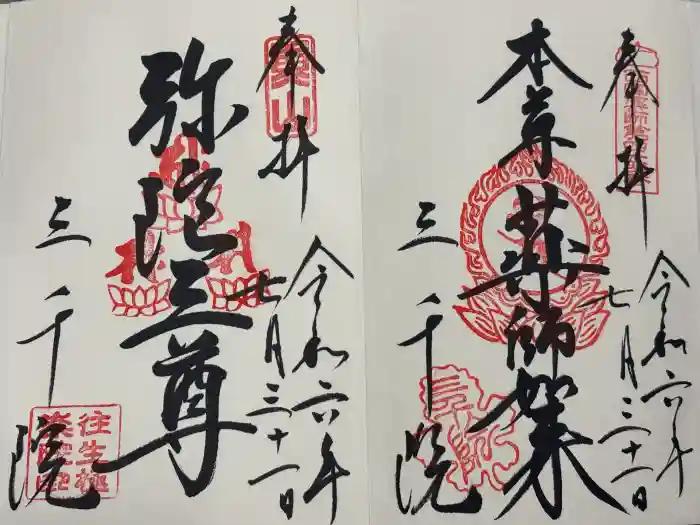 奉拝
令和六年
七月三十一日
本尊薬師如来
三千院
奉拝
魚山
令和六年
七月三十一日
弥陀三尊
三千院
往生極
楽院印